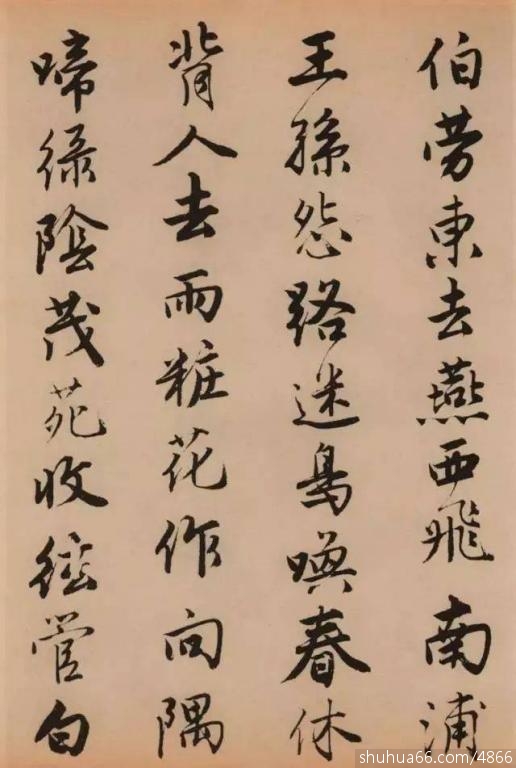 伯劳東去燕西飛南浦
王孫怨路迷鳥喚春休
背人去雨粧花作向隅
啼緑陰茂苑收絃管白
shuhua66.com/4866